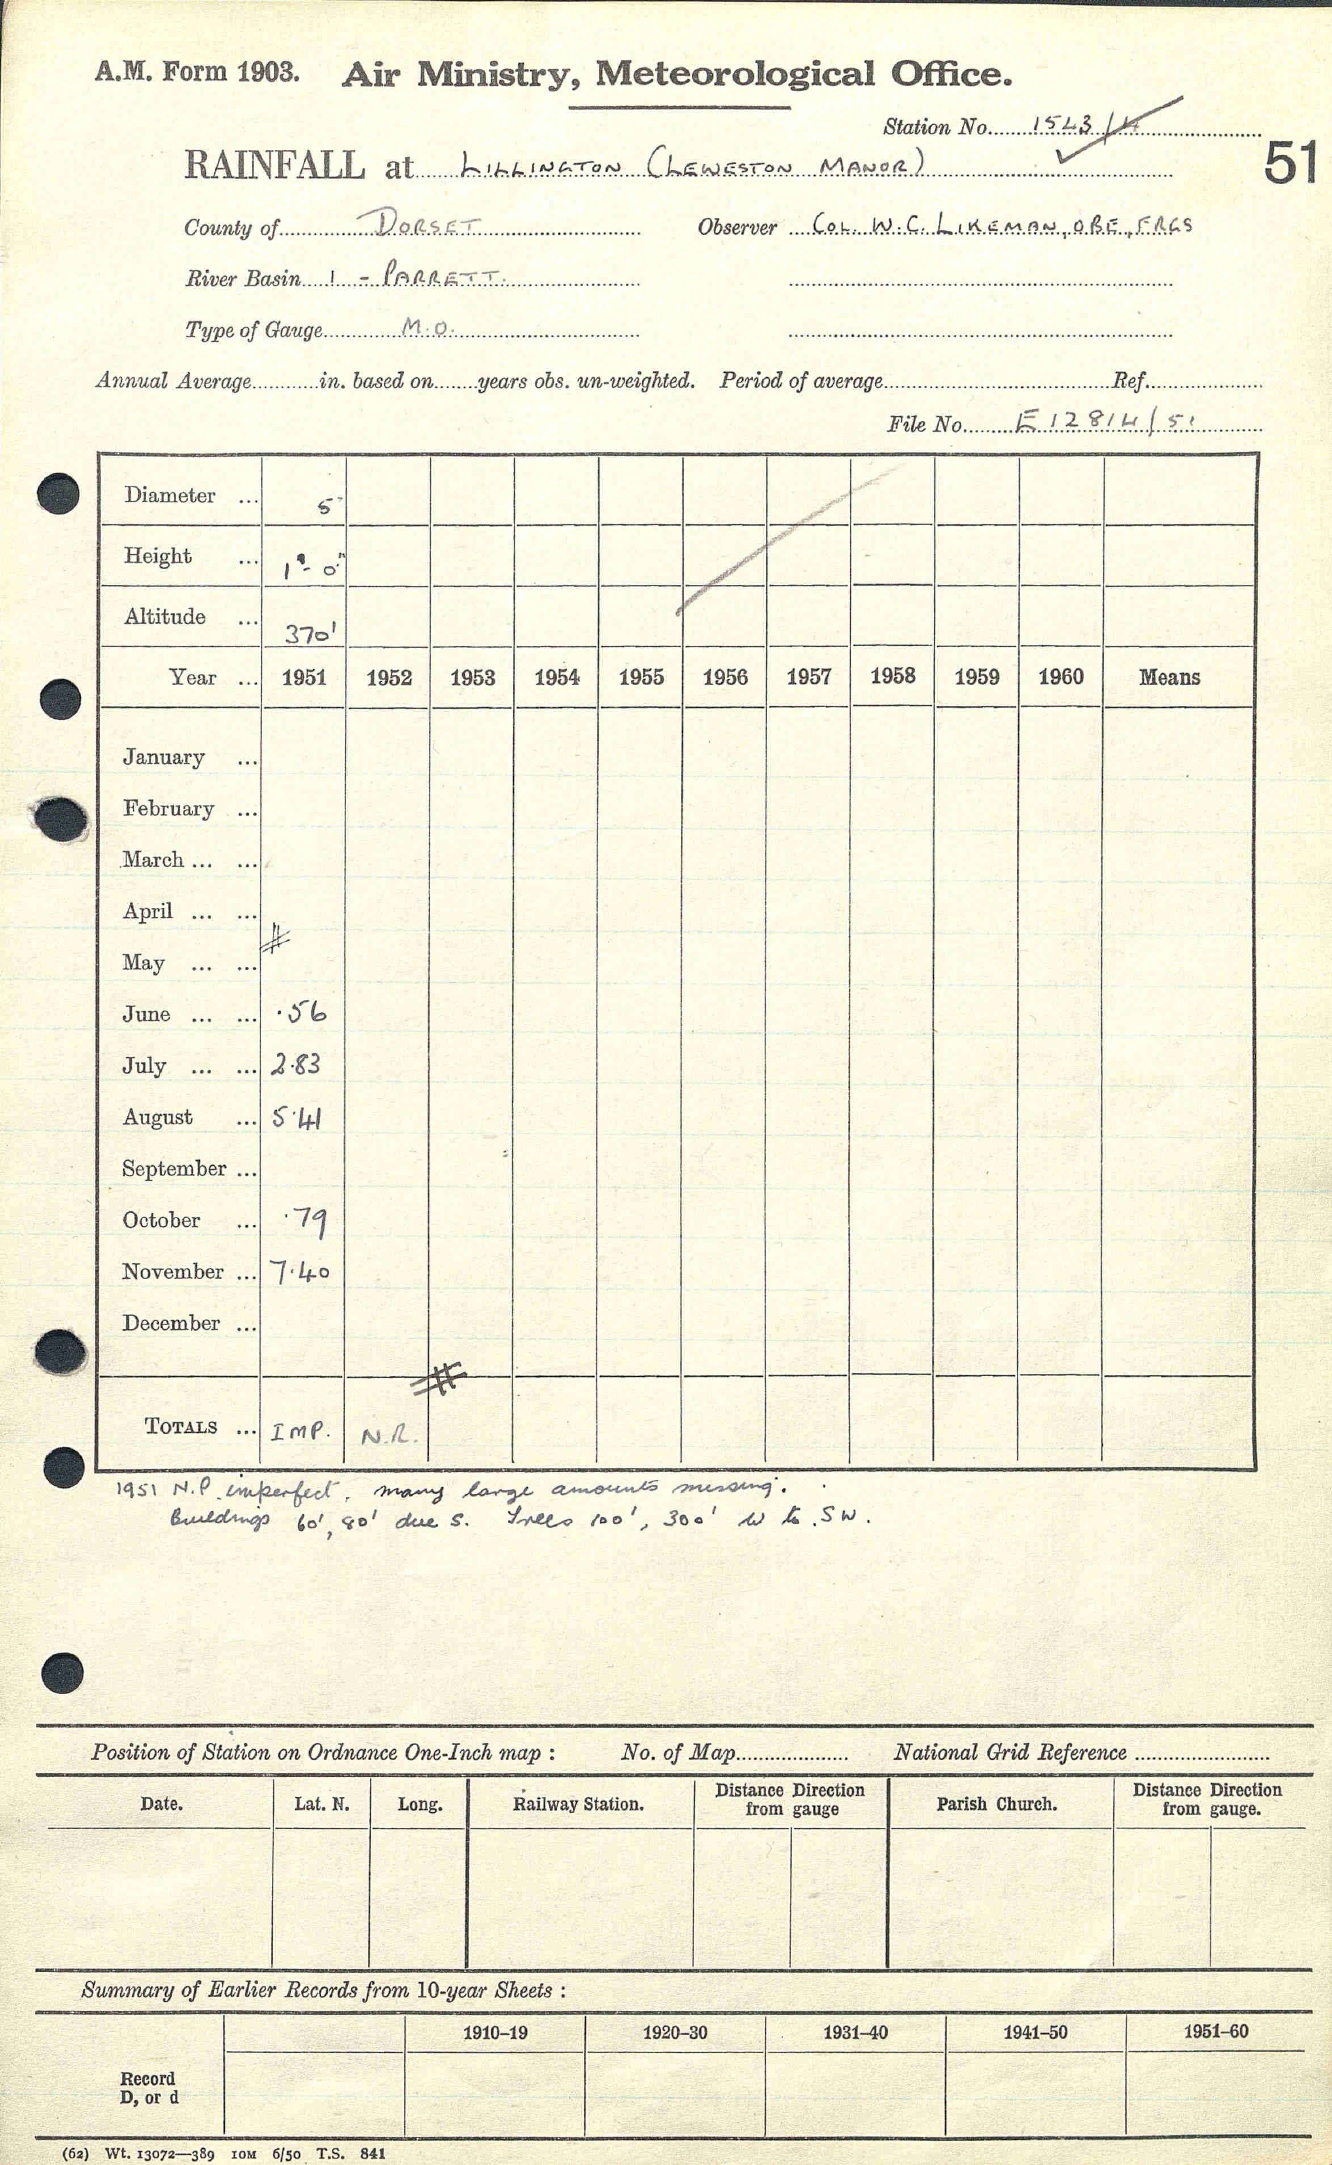 A.M. Form 1903. Air Ministry, Meteorological Office.
Station No. 1543/4
RAINFALL at LILLINGTON (LEWESTON MANOR)
51
County of DORSET Observer COL. W.C. LIKEMAN, OBE, FRGS
River Basin 1 - PARRETT.
Type of Gauge M.O.
Annual Average in. based on years obs. un-weighted. Period of average Ref.
File No. E12814/51
Diameter ... 5"
Height ... 1'- 0"
Altitude ... 370'
Year ... 1951 1952 1953 1954 1955 1956 1957 1958 1959 1960 Means
January ...
February ...
March ... ...
April ... ...
May ... ...
June ... ... ·56
July ... ... 2·83
August ... 5·41
September ...
October ... ·79
November ... 7·40
December ...
TOTALS ... IMP. N.R.
1951 N.P. imperfect. many large amounts missing.
Buildings 60', 80' due S. Trees 100', 300' W to SW.
Position of Station on Ordnance One-Inch map : No. of Map National Grid Reference
Date. Lat. N. Long. Railway Station. Distance Direction from gauge Parish Church. Distance Direction from gauge.
Summary of Earlier Records from 10-year Sheets :
1910–19 1920–30 1931–40 1941–50 1951–60
Record
D, or d
(62) Wt. 13072—389 10M 6/50 T.S. 841